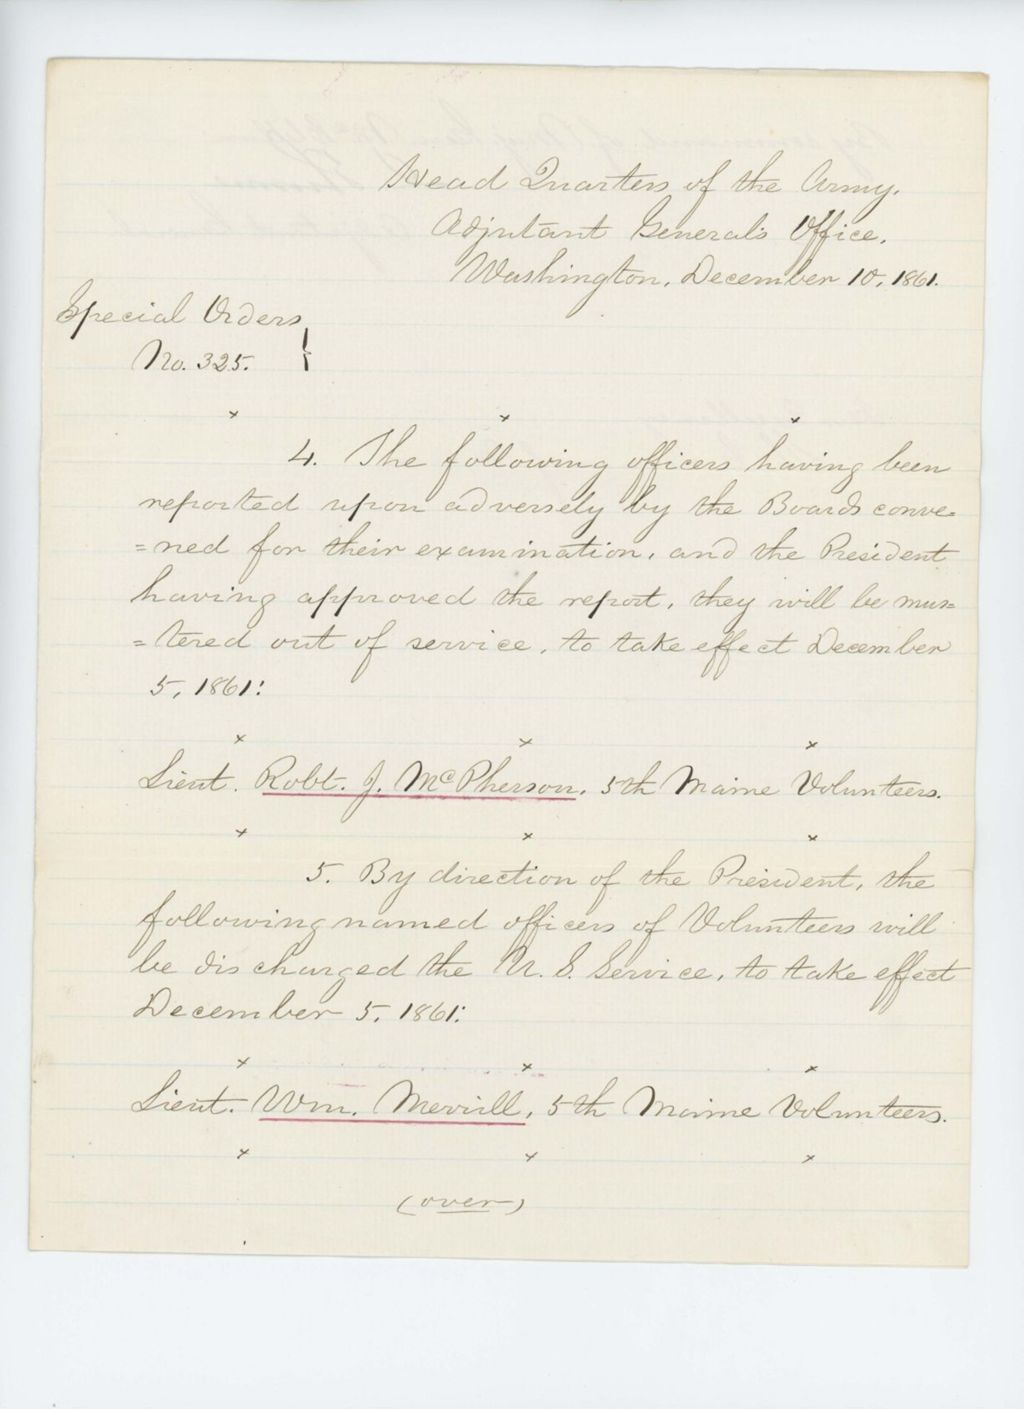 Head Quarters of the Army,
Adjutant General's Office,
Washington, December 10, 1861.
Special Orders,
No. 325. }
x x x
4. The following officers having been
reported upon adversely by the Boards conve=
=ned for their examination, and the President
having approved the report, they will be mus=
=tered out of service, to take effect December
5, 1861:
x x x
Lieut. Robt. J. McPherson, 5th Maine Volunteers.
x x x
5. By direction of the President, the
following named officers of Volunteers will
be discharged the U. S. Service, to take effect
December 5, 1861:
x x x
Lieut. Wm. Merrill, 5th Maine Volunteers.
x x x
(over)